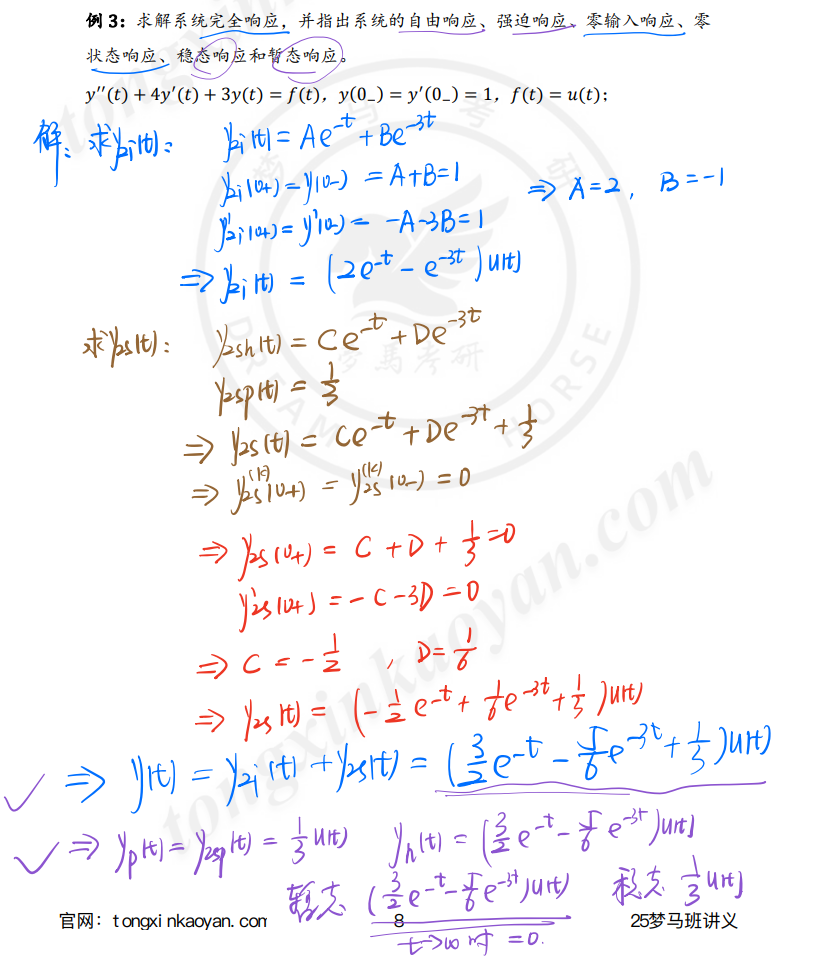 例 3：求解系统完全响应，并指出系统的自由响应、强迫响应、零输入响应、零
状态响应、稳态响应和暂态响应。
y′′(t) + 4y′(t) + 3y(t) = f(t)，y(0₋) = y′(0₋) = 1，f(t) = u(t)；
解：求yzi(t)： yzi(t) = Ae^-t + Be^-3t
yzi(0+) = y(0-) = A+B=1 ⇒ A=2, B=-1
y'zi(0+) = y'(0-) = -A-3B=1
⇒ yzi(t) = (2e^-t - e^-3t)u(t)
求yzs(t)： yzsh(t) = Ce^-t + De^-3t
yzsp(t) = 1/3
⇒ yzs(t) = Ce^-t + De^-3t + 1/3
⇒ yzs^(k)(0+) = yzs^(k)(0-) = 0
⇒ yzs(0+) = C + D + 1/3 = 0
y'zs(0+) = -C-3D = 0
⇒ C = -1/2 , D = 1/6
⇒ yzs(t) = (-1/2 e^-t + 1/6 e^-3t + 1/3)u(t)
⇒ y(t) = yzi(t) + yzs(t) = (3/2 e^-t - 5/6 e^-3t + 1/3)u(t)
⇒ yp(t) = yzsp(t) = 1/3 u(t) yh(t) = (3/2 e^-t - 5/6 e^-3t)u(t)
暂态 (3/2 e^-t - 5/6 e^-3t)u(t) 稳态 1/3 u(t)
t→∞ 时 = 0.
官网：tongxinkaoyan.com 8 25梦马班讲义
tongxinkaoyan.com
梦马考研
DREAM HORSE